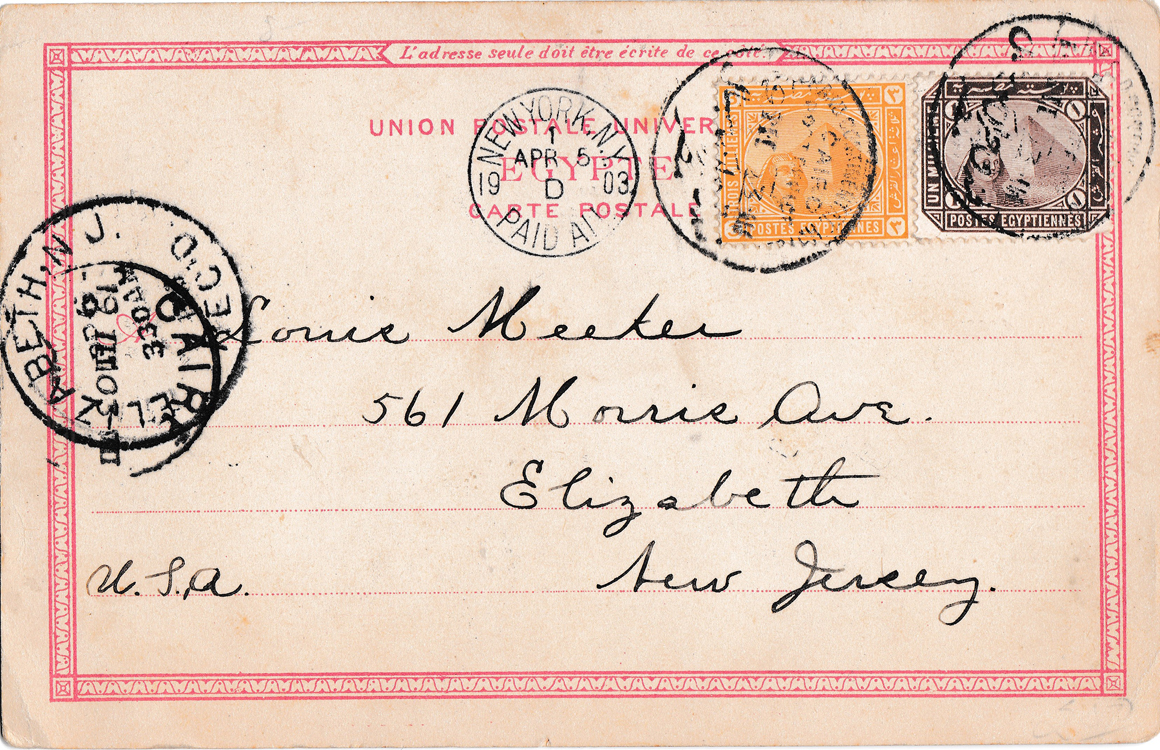 L'adresse seule doit être écrite de ce côté.
UNION POSTALE UNIVER
EGYPTE
CARTE POSTALE
NEW YORK, N.Y.
1
APR 5
19 D 03
PAID ALL
TROIS MILLIEMES
POSTES EGYPTIENNES
UN MILLIEME
POSTES EGYPTIENNES
CAIRO
ELIZABETH, N.J.
REC'D.
330AM
CAIRO
Louis Meeker
561 Morris Ave.
Elizabeth
New Jersey.
U.S.A.